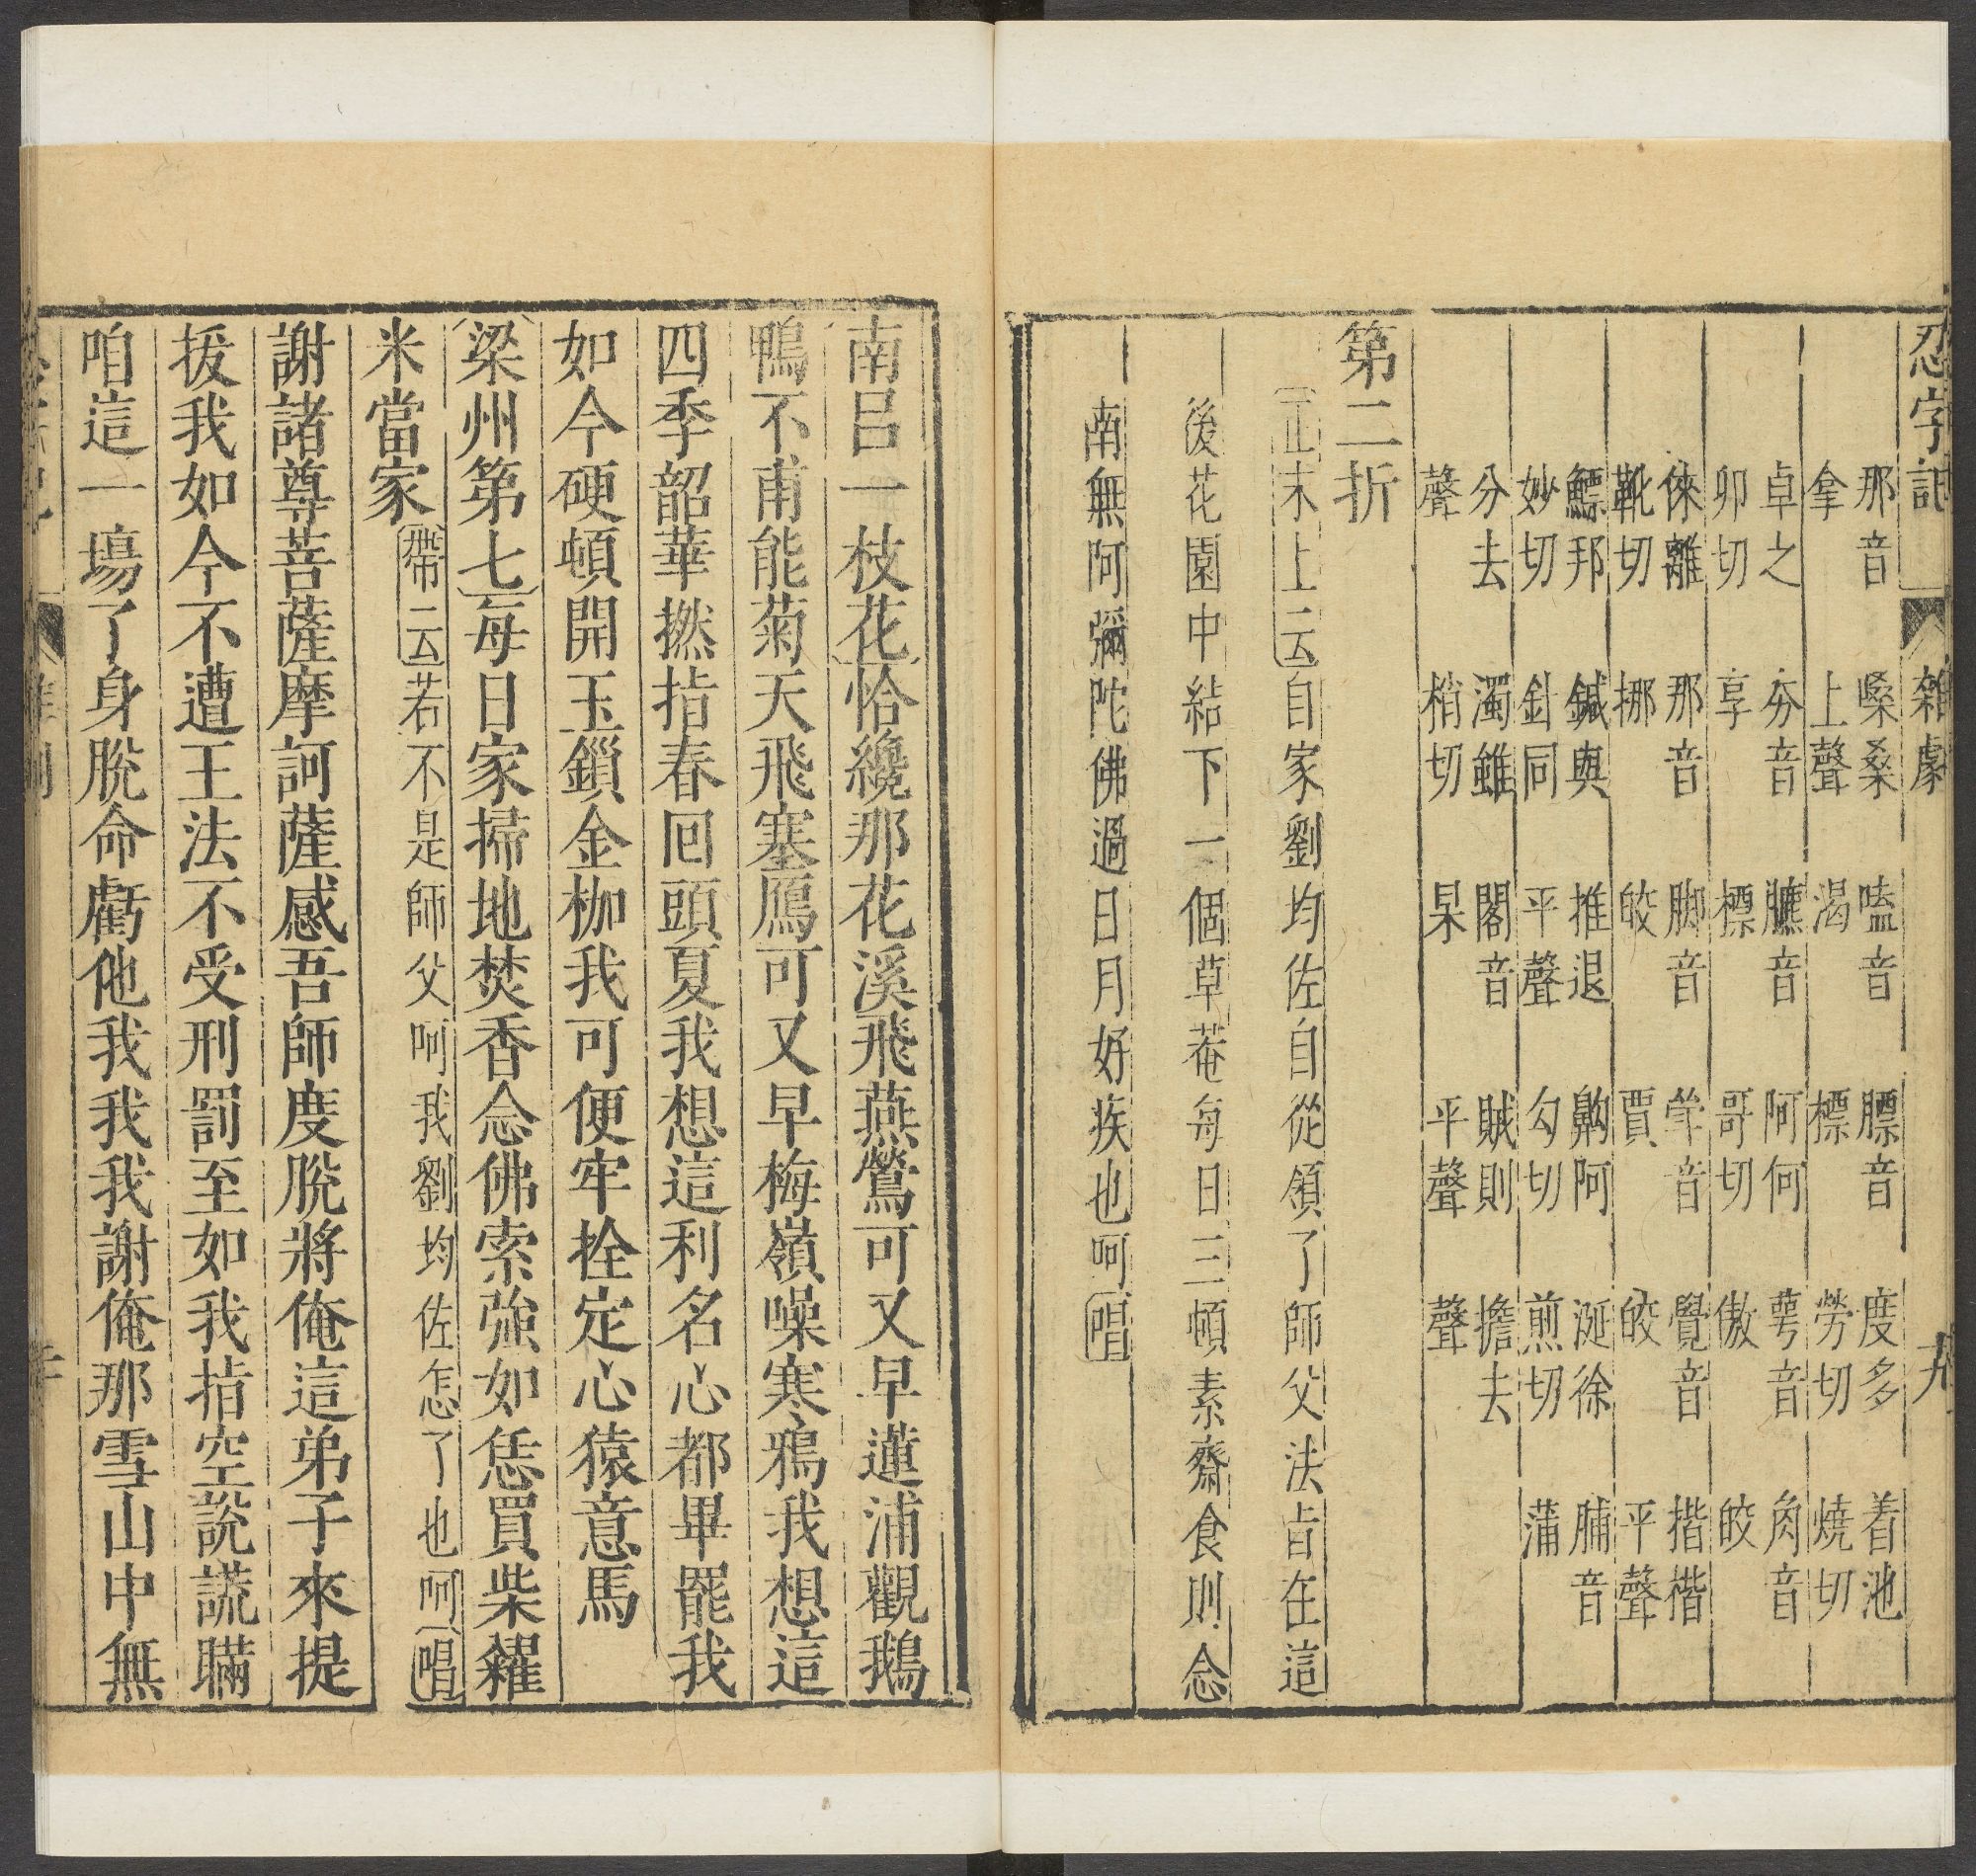 忍字記 雜劇 九
那音拿 嗓桑上聲 嗑音渴 臕音標 度多勞切 着池燒切
卓之卯切 夯音享 臕音標 阿何哥切 萼音傲 角音皎
倈離靴切 那音挪 脚音皎 斝音賈 覺音皎 揩楷平聲
鰾邦妙切 鍼與針同 推退平聲 齁阿勾切 涎徐煎切 脯音蒲
分去聲 濁雖梢切 閣音杲 賊則平聲 擔去聲
第二折
正末上云自家劉均佐自從領了師父法旨在這
後花園中結下一個草菴每日三頓素齋食則念
南無阿彌陀佛過日月好疾也呵唱
南呂一枝花恰纔那花溪飛燕鶯可又早蓮浦觀鵝
鴨不甫能菊天飛塞鴈可又早梅嶺噪寒鴉我想這
四季韶華撚指春回頭夏我想這利名心都畢罷我
如今硬頓開玉鎖金枷我可便牢拴定心猿意馬
梁州第七每日家掃地焚香念佛索強如恁買柴糴
米當家帶云若不是師父呵我劉均佐怎了也呵唱
謝諸尊菩薩摩訶薩感吾師度脫將俺這弟子來提
拔我如今不遭王法不受刑罰至如我指空說謊瞞
咱這一場了身脫命虧他我我我謝俺那雪山中無